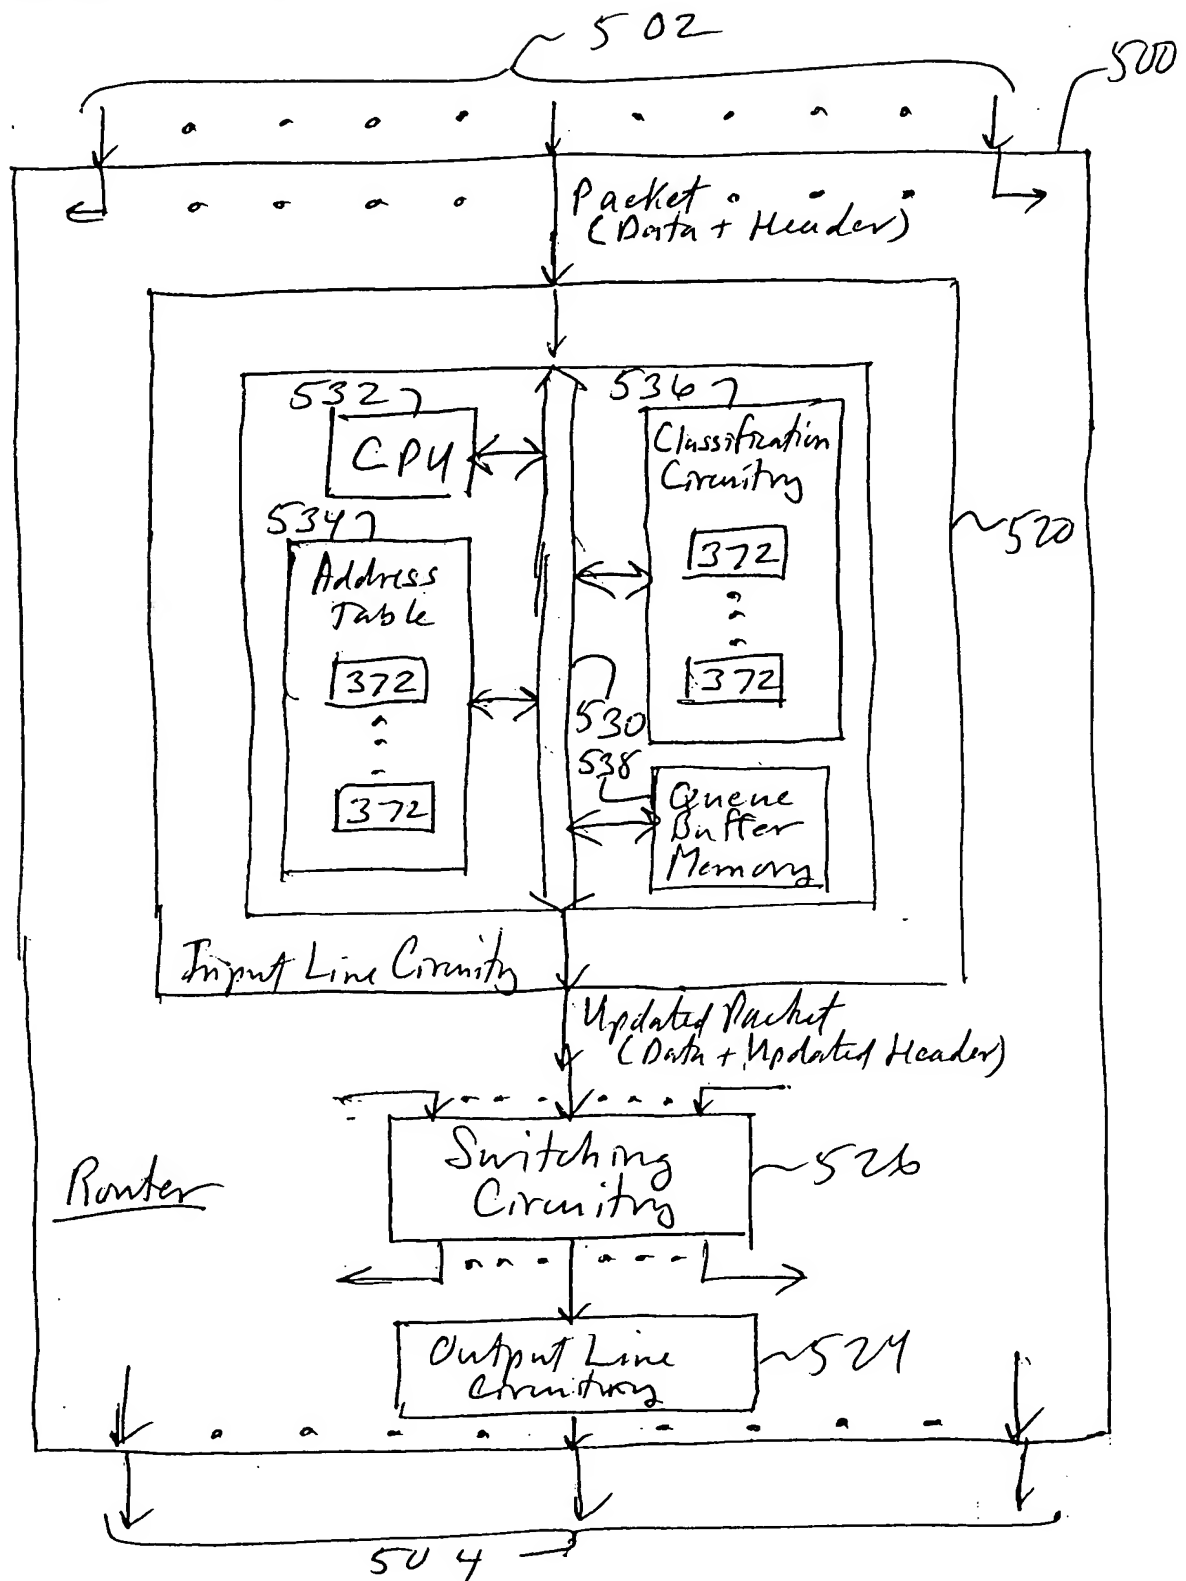 502
500
Packet
(Data + Header)
532
CPU
536
Classification
Circuitry
372
372
534
Address
Table
372
372
530
538
Queue
Buffer
Memory
520
Input Line Circuitry
Updated Packet
(Data + Updated Header)
Switching
Circuitry
526
Router
Output Line
Circuitry
524
504